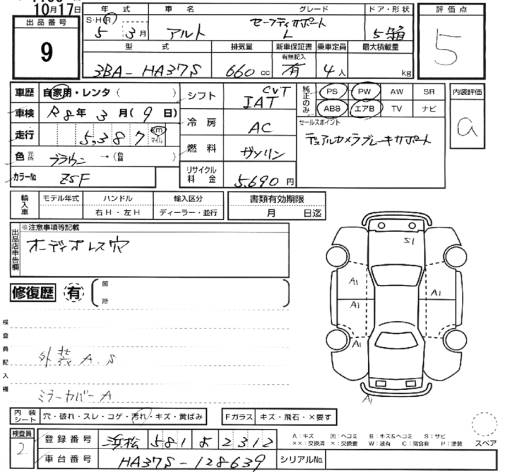 10月17日
出品番号
9
年式 車名 グレード ドア・形状
S・H(R) 5年 3月 アルト セーフティサポート L 5 箱
評価点
5
型式 排気量 新車保証書 乗車定員 最大積載量
有無記入
3BA-HA37S 660cc 有 4人 kg
車歴 自家用・レンタ( )
車検 R8年3月(9日)
走行 5,387 km マイル
色 ブラウン →( )
カラーNo Z5F
シフト CVT IAT
冷房 AC
燃料 ガソリン
リサイクル料金 5,690円
純正のみ PS PW AW SR
ABS エアB TV ナビ
セールスポイント
デュアルカメラブレーキサポート
内装評価
a
輸入車 モデル年式 ハンドル 輸入区分
年 右H・左H ディーラー・並行
書類有効期限
月 日迄
出品店申告欄
※注意事項等記載
オーディオレス穴
修復歴 有
検査員記入欄
外装A.S
ミラーカバーA
S1
A1
A1
A1
A1
内装シート 穴・破れ・スレ・コゲ・汚れ・キズ・黄ばみ
Fガラス キズ・飛石・×要す
検査員 2
登録番号 浜松 581 を 2312
車台番号 HA37S-128639
シリアルNo
A:キズ B:キズ&ヘコミ S:サビ
××:交換済 ×:交換要 W:波有 C:腐食 P:塗装
スペア